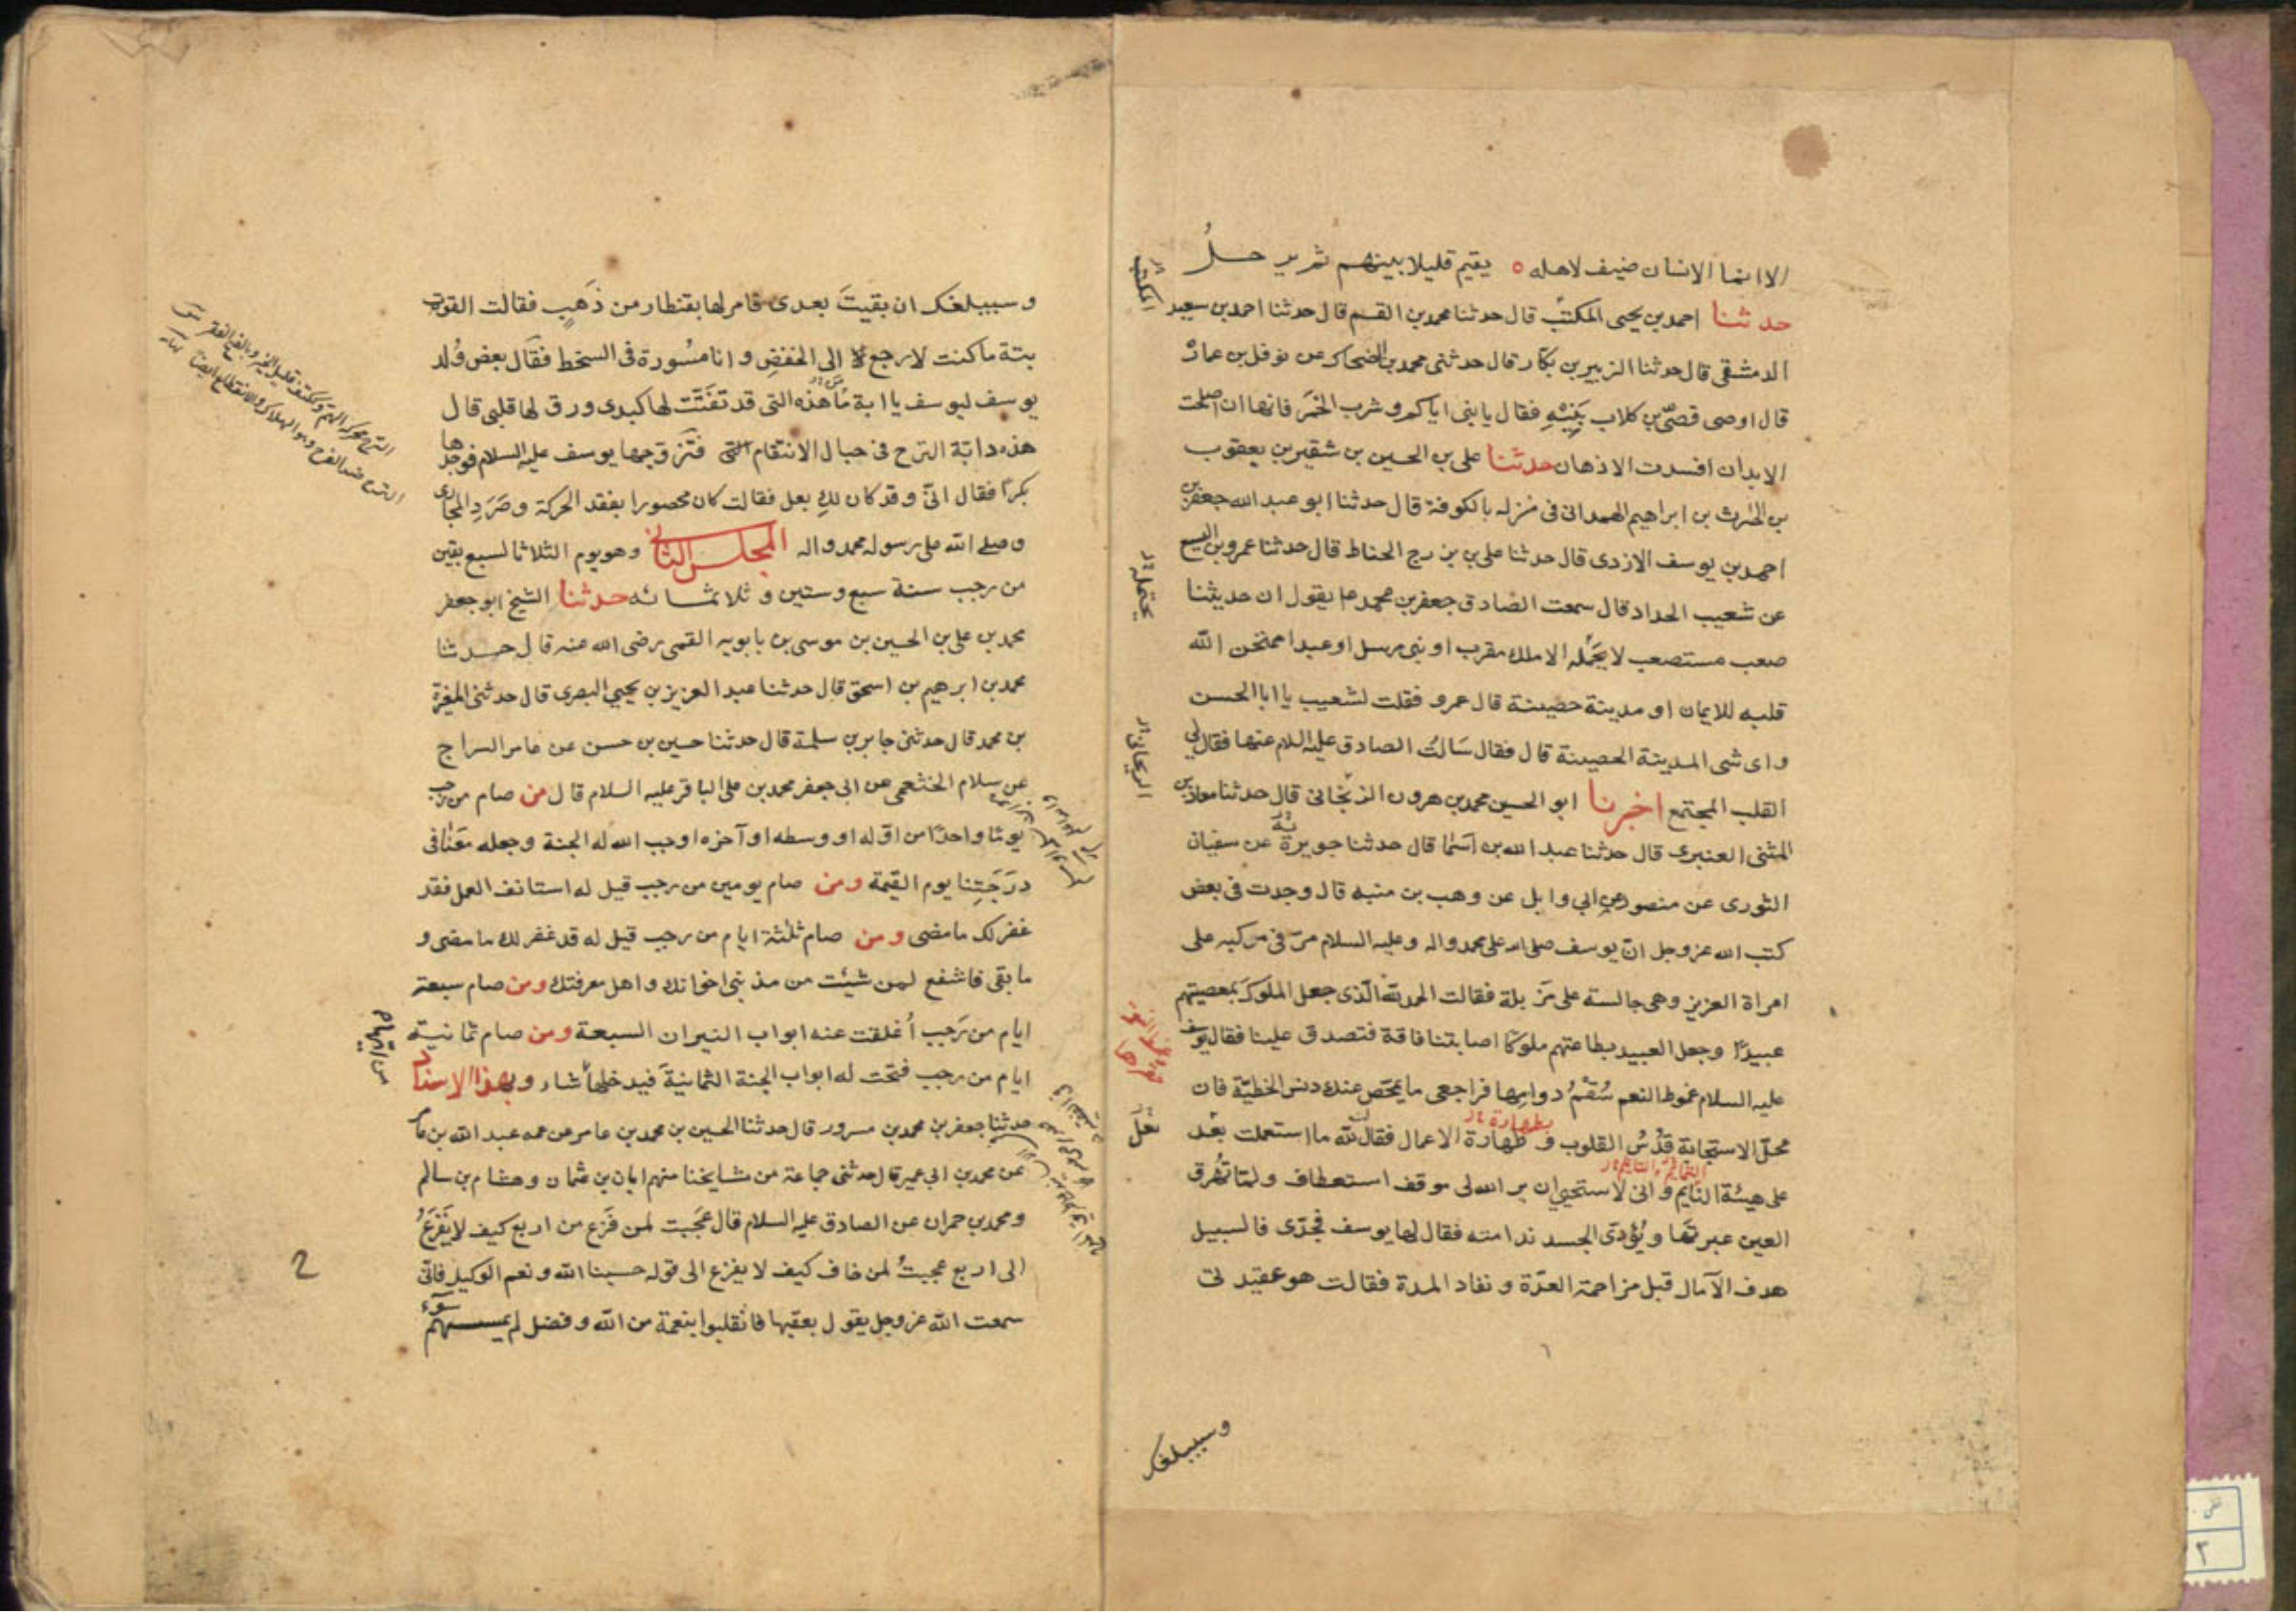 الا انما الانسان ضيف لاهله ه يقيم قليلا بينهم ثم يرحلُ
حدثنا احمد بن يحيى المكتب قال حدثنا محمد بن القسم قال حدثنا احمد بن سعيد
الدمشقى قال حدثنا الزبير بن بكار قال حدثنى محمد بن الضحاك عن نوفل بن عمارة
قال اوصى قصىّ بن كلاب بَنِيْهِ فقال يا بنى اياكم و شرب الخمر فانها ان اصلحت
الابدان افسدت الاذهان حدثنا على بن الحسين بن شقير بن يعقوب
بن الحٰرث بن ابراهيم الهمدانى فى منزله بالكوفة قال حدثنا ابو عبد الله جعفر بن
احمد بن يوسف الازدى قال حدثنا على بن بزرج الحناط قال حدثنا عمرو بن اليسع
عن شعيب الحداد قال سمعت الصادق جعفر بن محمد ع يقول ان حديثنا
صعب مستصعب لا يحمله الا ملك مقرب او نبى مرسل او عبد امتحن الله
قلبه للايمان او مدينة حصينة قال عمرو فقلت لشعيب يا ابا الحسن
و اى شى المدينة الحصينة قال فقال سَالتُ الصادق عليه السلام عنها فقال لى
القلب المجتمع اخبرنا ابو الحسين محمد بن هرون الزنجانى قال حدثنا معاذ بن
المثنى العنبرى قال حدثنا عبد الله بن اسما قال حدثنا جويرية عن سفيان
الثورى عن منصور عن ابى وايل عن وهب بن منبه قال وجدت فى بعض
كتب الله عز وجل ان يوسف صلى الله على محمد واله و عليه السلام مرّ فى مركبه على
امراة العزيز وهى جالسة على مزبلة فقالت الحمد لله الّذى جعل الملوك بمعصيتهم
عبيدًا وجعل العبيد بطاعتهم ملوكًا اصابتنا فاقة فتصدق علينا فقال يوسف
عليه السلام غموط النعم سُقْمُ دوامِها فراجعى ما يمحّص عنك دنس الخطيّة فان
محلّ الاستجابة قُدْسُ القلوب و طهارة الاعمال فقالت ما اشتملت بعد
على هيئة التايم و انى لاستحيى ان يرى الله لى موقف استعطاف ولمّا تُهرق
العين عبرتها و يُؤدّى الجسد ندامته فقال لها يوسف فجدّى فالسبيل
هدف الآمال قبل مزاحمة العدّة و نفاد المدة فقالت هو عقيدتى
وسيبلغك
المكتب
يحتمله
الريحانى
بطهارة
و سيبلغك ان بقيتَ بعدى فامر لها بقنطار من ذَهبٍ فقالت القوت
بتة ما كنت لارجع الى الخفضِ و انا مسُورة فى السخط فقال بعض وُلد
يوسف ليوسف يا ابة ما هذه التى قد تفتّتت لها كبدى و رق لها قلبى قال
هذه دابّة الترح فى حبال الانتقام فتزوجها يوسف عليه السلام فوجدها
بكرًا فقال انّى و قد كان لكِ بعل فقالت كان محصورا بفقد الحركة و صَرَدِ المجارى
و صلى الله على رسوله محمد واله المجلس الثانى و هو يوم الثلاثا لسبع بقين
من رجب سنة سبع و ستين و ثلاثمائه حدثنا الشيخ ابو جعفر
محمد بن على بن الحسين بن موسى بن بابويه القمى رضى الله عنه قال حدثنا
محمد بن ابرهيم بن اسحق قال حدثنا عبد العزيز بن يحيى البصرى قال حدثنى المغيرة
بن محمد قال حدثنى جابر بن سلمة قال حدثنا حسين بن حسن عن عامر السراج
عن سلام الخثعمى عن ابى جعفر محمد بن على الباقر عليه السلام قال من صام من رجب
يومًا واحدًا من اوّله او وسطه او آخره اوجب الله له الجنة و جعله معنا فى
درَجَتِنا يوم القيٰمة ومن صام يومين من رجب قيل له استانف العمل فقد
غفر لك ما مضى ومن صام ثلثة ايام من رجب قيل له قد غفر لك ما مضى و
ما بقى فاشفع لمن شئت من مذنبى اخوانك و اهل معرفتك ومن صام سبعة
ايام من رَجب اُغلقت عنه ابواب النيران السبعة ومن صام ثمانية
ايام من رجب فتحت له ابواب الجنة الثمانية فيدخلها شاء وبهذا الاسناد
حدثنا جعفر بن محمد بن مسرور قال حدثنا الحسين بن محمد بن عامر عن عمه عبد الله بن عامر
عن محمد بن ابى عمير قال حدثنى جماعة من مشايخنا منهم ابان بن عثمان و هشام بن سالم
و محمد بن حمران عن الصادق عليه السلام قال عجَبت لمن فَزع من اربع كيف لا يَفزَعُ
الى اربع عجبتُ لمن خاف كيف لا يفزع الى قوله حسبنا الله و نعم الوكيل فانّى
سمعت الله عز وجل يقول بعقبها فانقلبوا بنعمة من الله و فضل لم يمسسهم سوٓء
من ايّها
2